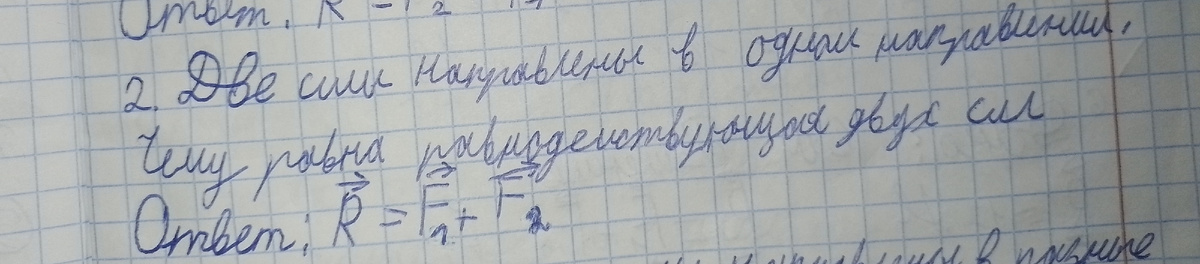 Ответ: R = F₂
2. Две силы направлены в одном направлении.
Чему равна равнодействующая двух сил
Ответ: R⃗ = F⃗₁ + F⃗₂
направлены в разные